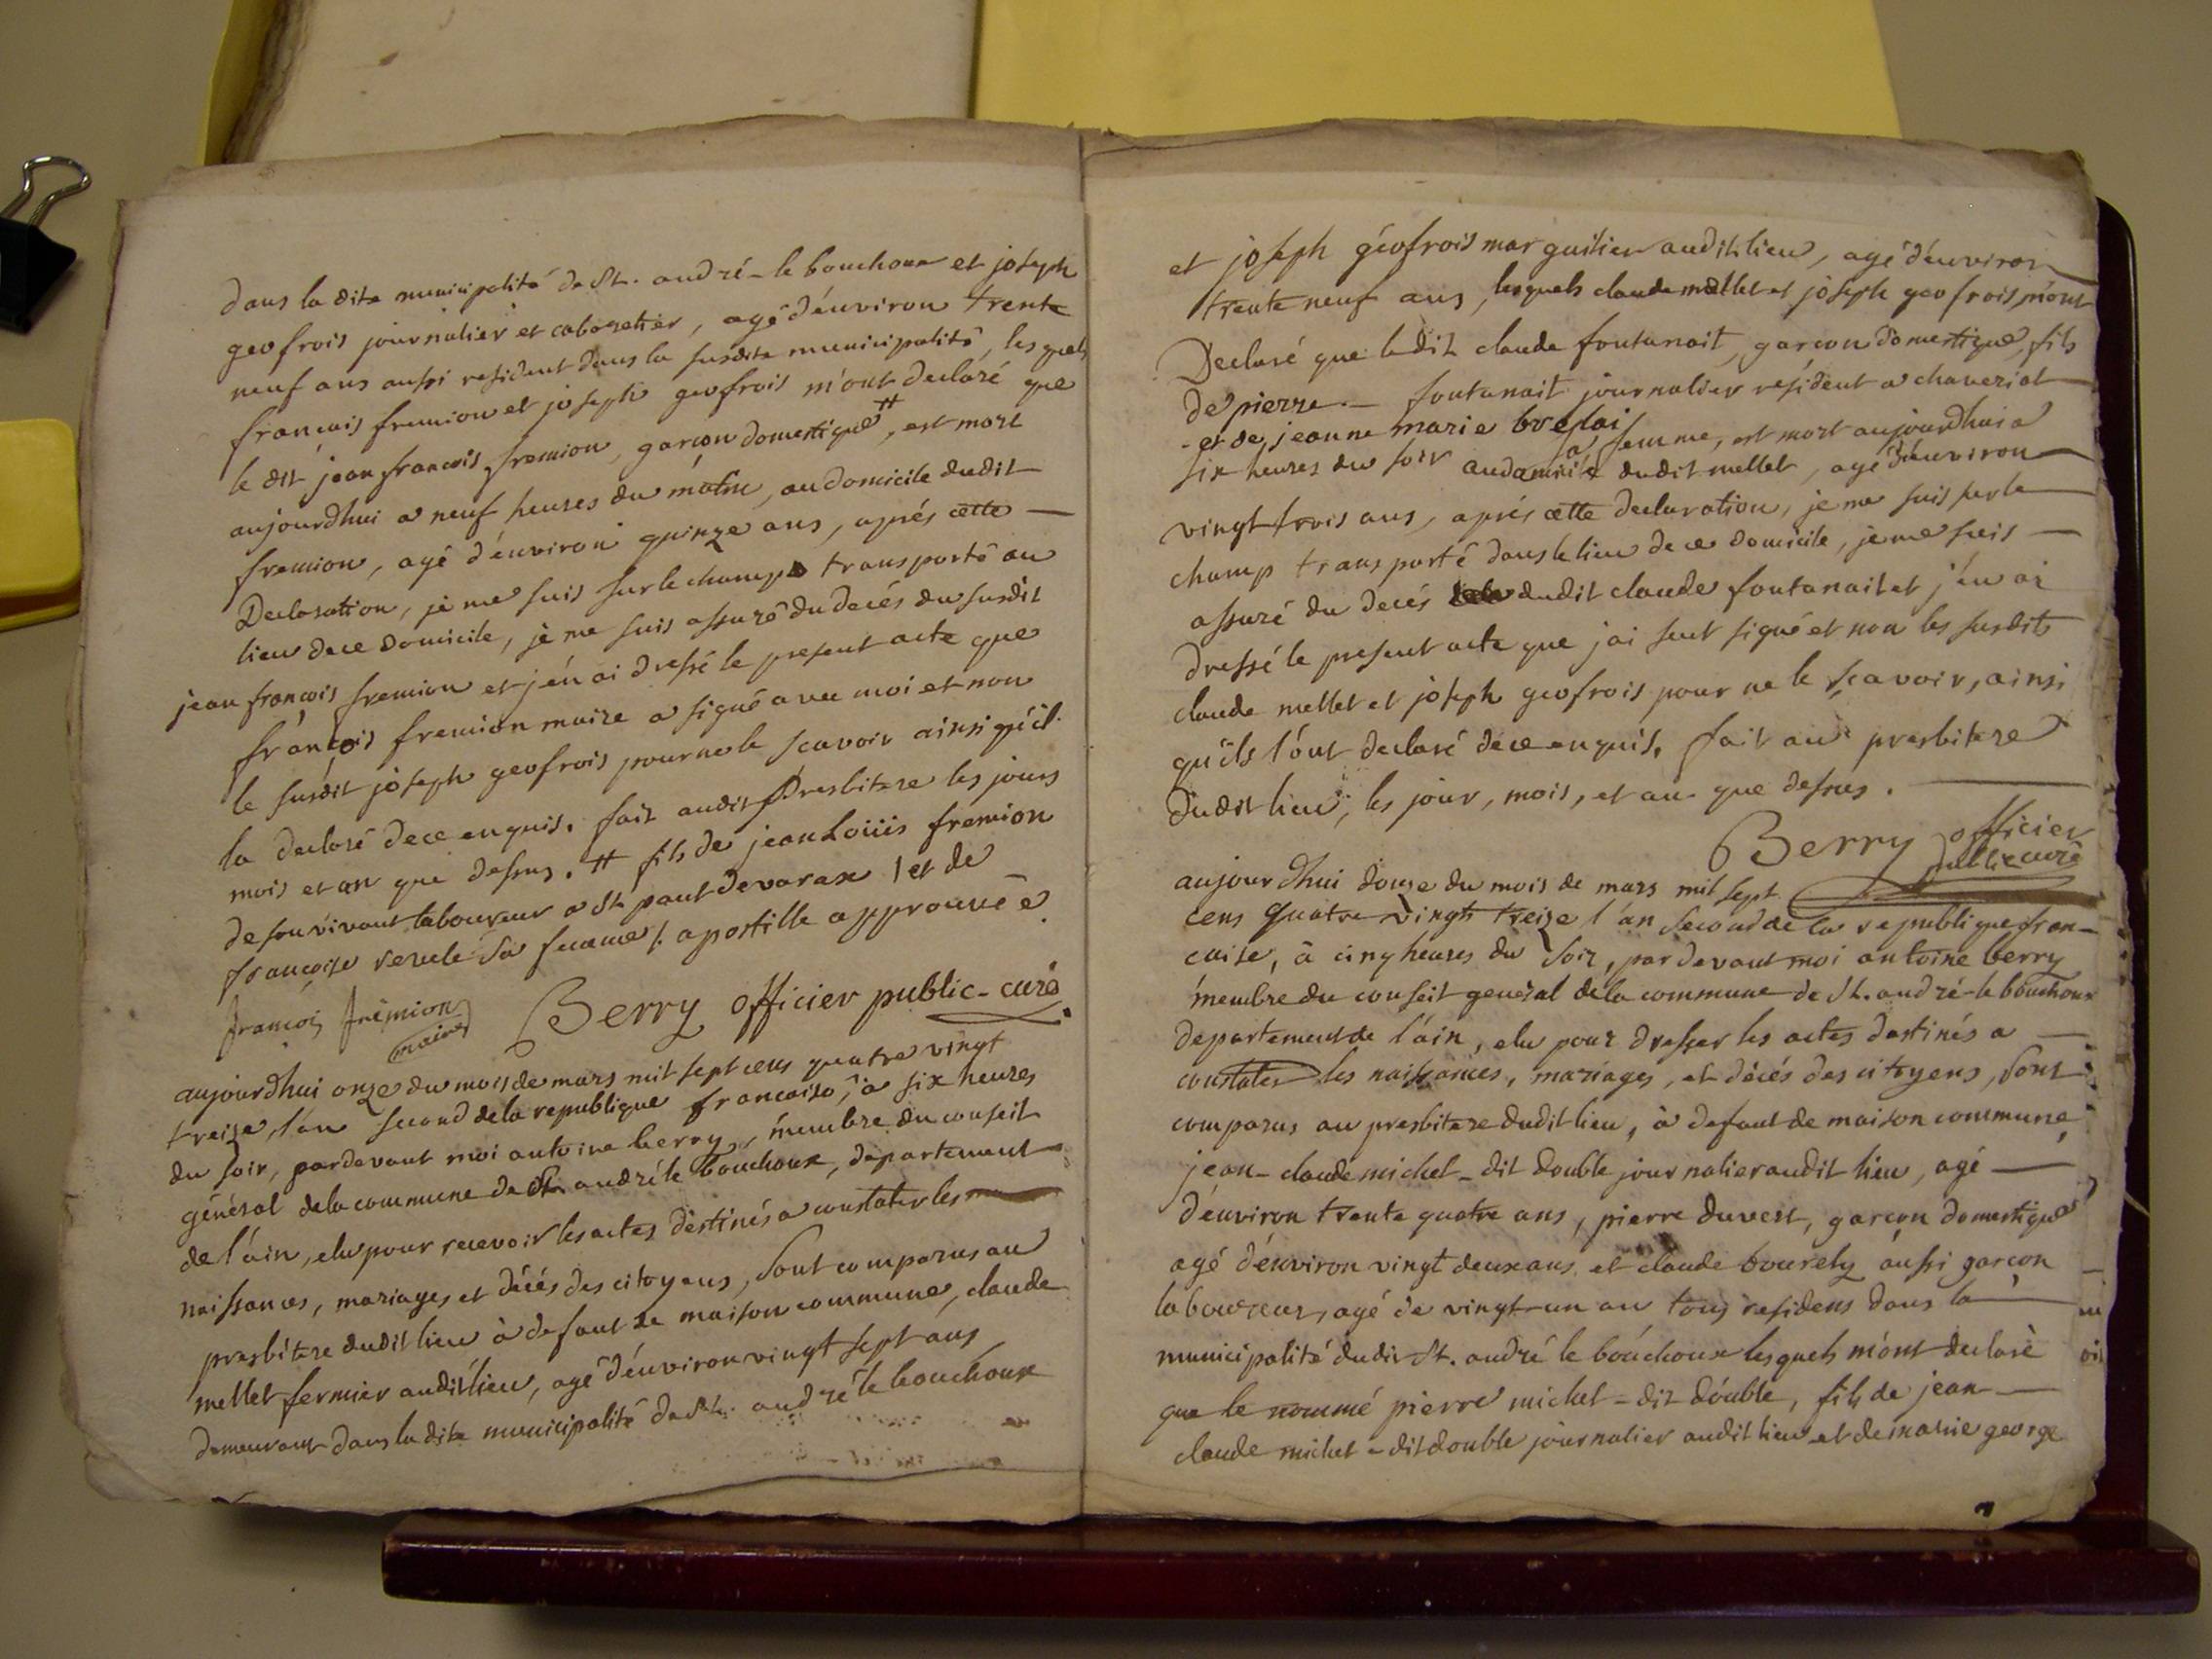 dans la dite municipalité de St. andré-le bouchoux et joseph
geofrois journalier et cabaretier, agé d'énviron trente
neuf ans aussi resident dans la susdite municipalité, les quels
francais fremion et joseph geofrois m'ont declaré que
le dit jean francois fremion, garcon domestique ⧺, est mort
aujourdhui a neuf heures du matin, au domicile dudit
fremion, agé d'énviron quinze ans, aprés cette —
Declaration, je me suis sur le champ transporté au
lieu de ce domicile, je me suis assuré du decés du susdit
jean francois fremion et j'én ai dressé le present acte que
francois fremion maire a signé avec moi et non
le susdit joseph geofrois pour ne le scavoir ainsi qu'il
la declaré de ce enquis. fait audit presbitere les jours
mois et an que dessus. ⧺ fils de jean Loüis fremion
de son vivant laboureur a St paul de varax / et de
francoise revele sa femme /. apostille approuvéé.
francois fremion
maire
Berry officier public-curé
aujourdhui onze du mois de mars mil sept cens quatre vingt
treize, l'án second de la republique francaise, à six heures
du soir, pardevant moi antoine berry, membre du conseil
général de la commune de St. andré le bouchoux, departement
de l'áin, elu pour recevoir les actes destinés a constater les
naissances, mariages et décés des citoyens, sont comparus au
presbitere dudit lieu à defaut de maison commune, claude
mellet fermier audit lieu, agé d'énviron vingt sept ans
demeurant dans la dite municipalité de St. andré le bouchoux
et joseph géofrois marguilier audit lieu, agé d'énviron
trente neuf ans, lesquels claude mellet et joseph geofrois m'ont
Declaré que ledit claude fontanait, garcon domestique, fils
de pierre — fontanait journalier resident a chaveriat
- et de jeanne marie brelai sa femme, est mort aujourdhui a
six heures du soir au domicile dudit mellet, agé d'énviron
vingt trois ans, aprés cette declaration, je me suis sur le
champ transporté dans le lieu de ce domicile, je me suis —
assuré du decés dudit claude fontanait et j'én ai
dressé le present acte que j'ai seul signé et non les susdits
claude mellet et joseph geofrois pour ne le scavoir, ainsi
qu'ils l'ónt declaré de ce enquis. fait au presbitere
dudit lieu, les jour, mois, et an que dessus. —
Berry officier
public curé
aujourdhui douze du mois de mars mil sept
cens quatre vingts treize l'án second de la republique fran-
caise, à cinq heures du soir, pardevant moi antoine berry
membre du conseil general de la commune de St. andré-le bouchoux
departement de l'áin, elu pour dresser les actes destinés a —
constater les naissances, mariages, et décés des citoyens, sont
comparus au presbitere dudit lieu, à defaut de maison commune,
jean-claude michel-dit double journalier audit lieu, agé —
d'énviron trente quatre ans, pierre duvert, garcon domestique
agé d'énviron vingt deux ans et claude bourely áussi garcon
laboureur, agé de vingt-un an tous residens dans la —
municipalité dudit St. andré le bouchoux lesquels m'ónt declaré
que le nommé pierre michel-dit double, fils de jean —
claude michel-dit double journalier audit lieu et de marie george